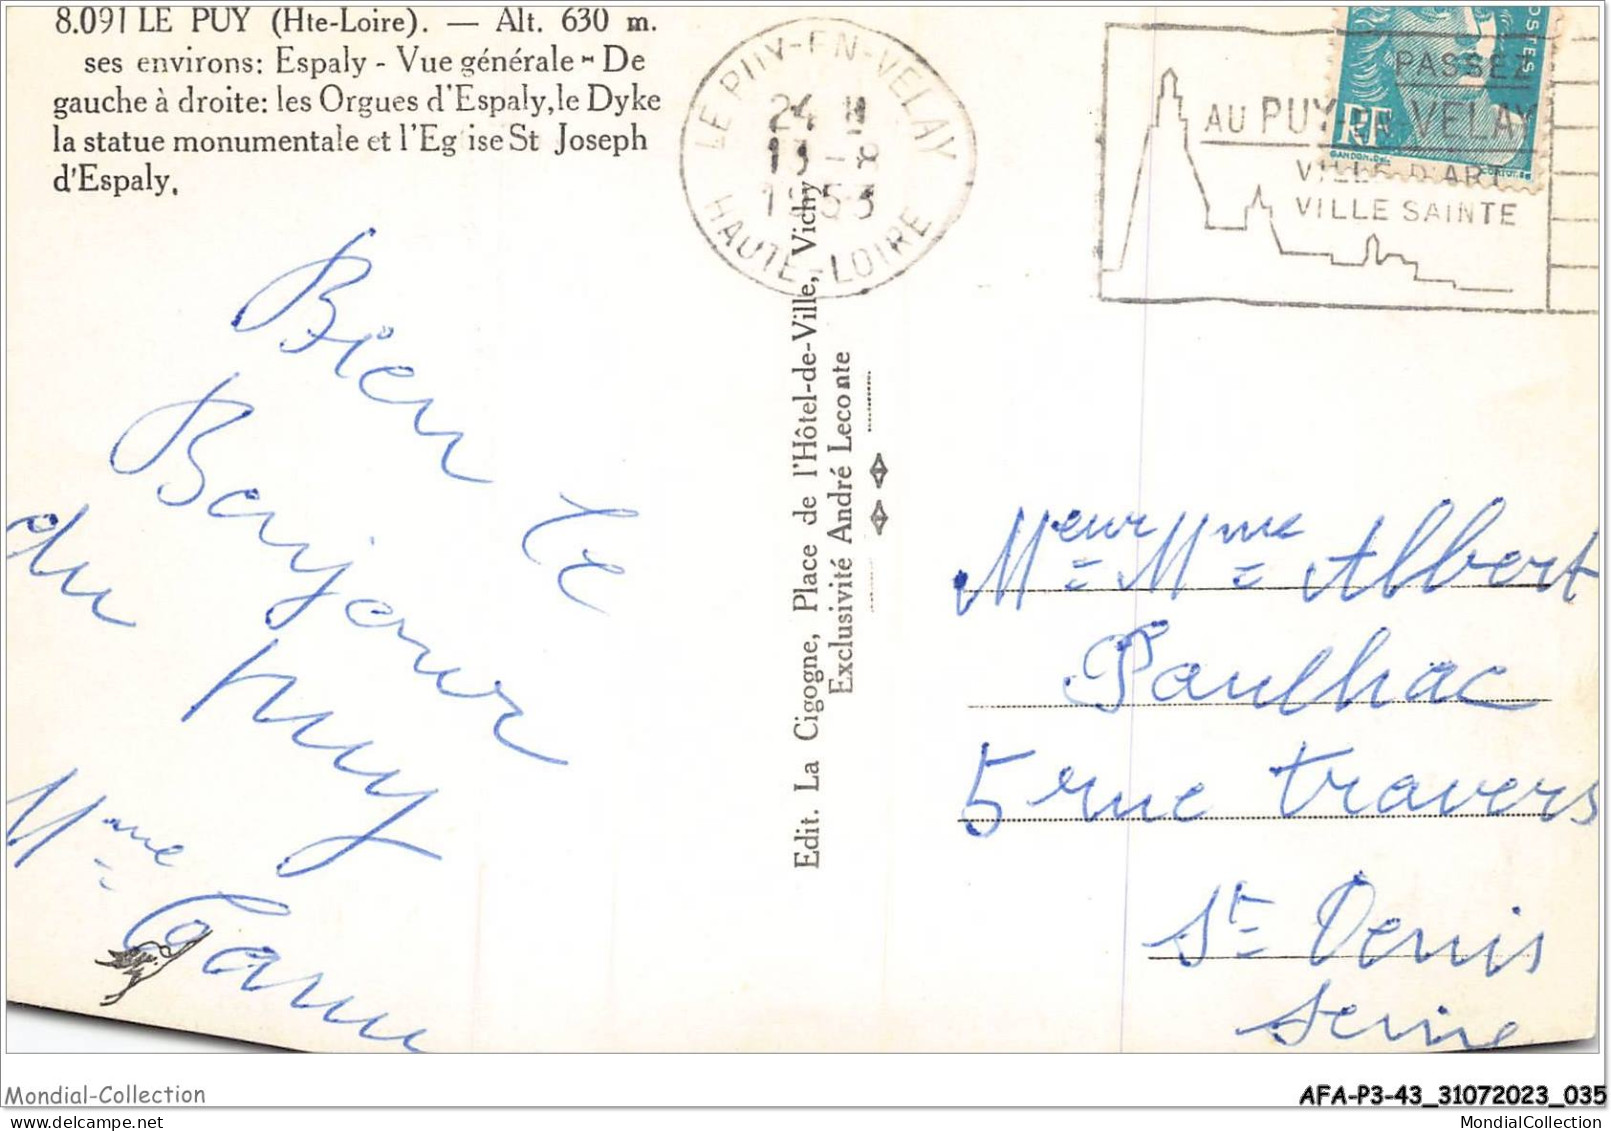 8.091 LE PUY (Hte-Loire). — Alt. 630 m.
ses environs: Espaly - Vue générale - De
gauche à droite: les Orgues d'Espaly, le Dyke
la statue monumentale et l'Eg ise St Joseph
d'Espaly.
LE PUY-EN-VELAY
24 H
13 -8
1953
HAUTE-LOIRE
PASSEZ
AU PUY-EN VELAY
VILLE D'ART
VILLE SAINTE
POSTES
RF
GANDON.DEL.
Bien le
Bonjour
du puy
Mme
Edit. La Cigogne, Place de l'Hôtel-de-Ville, Vichy
Exclusivité André Leconte
Meur Mme Albert
Paulhac
5 rue travers
St Denis
Seine
Mondial-Collection
AFA-P3-43_31072023_035
MondialCollection